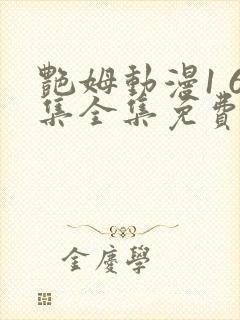 艷姆動漫1 6
集全集免費
金慶學